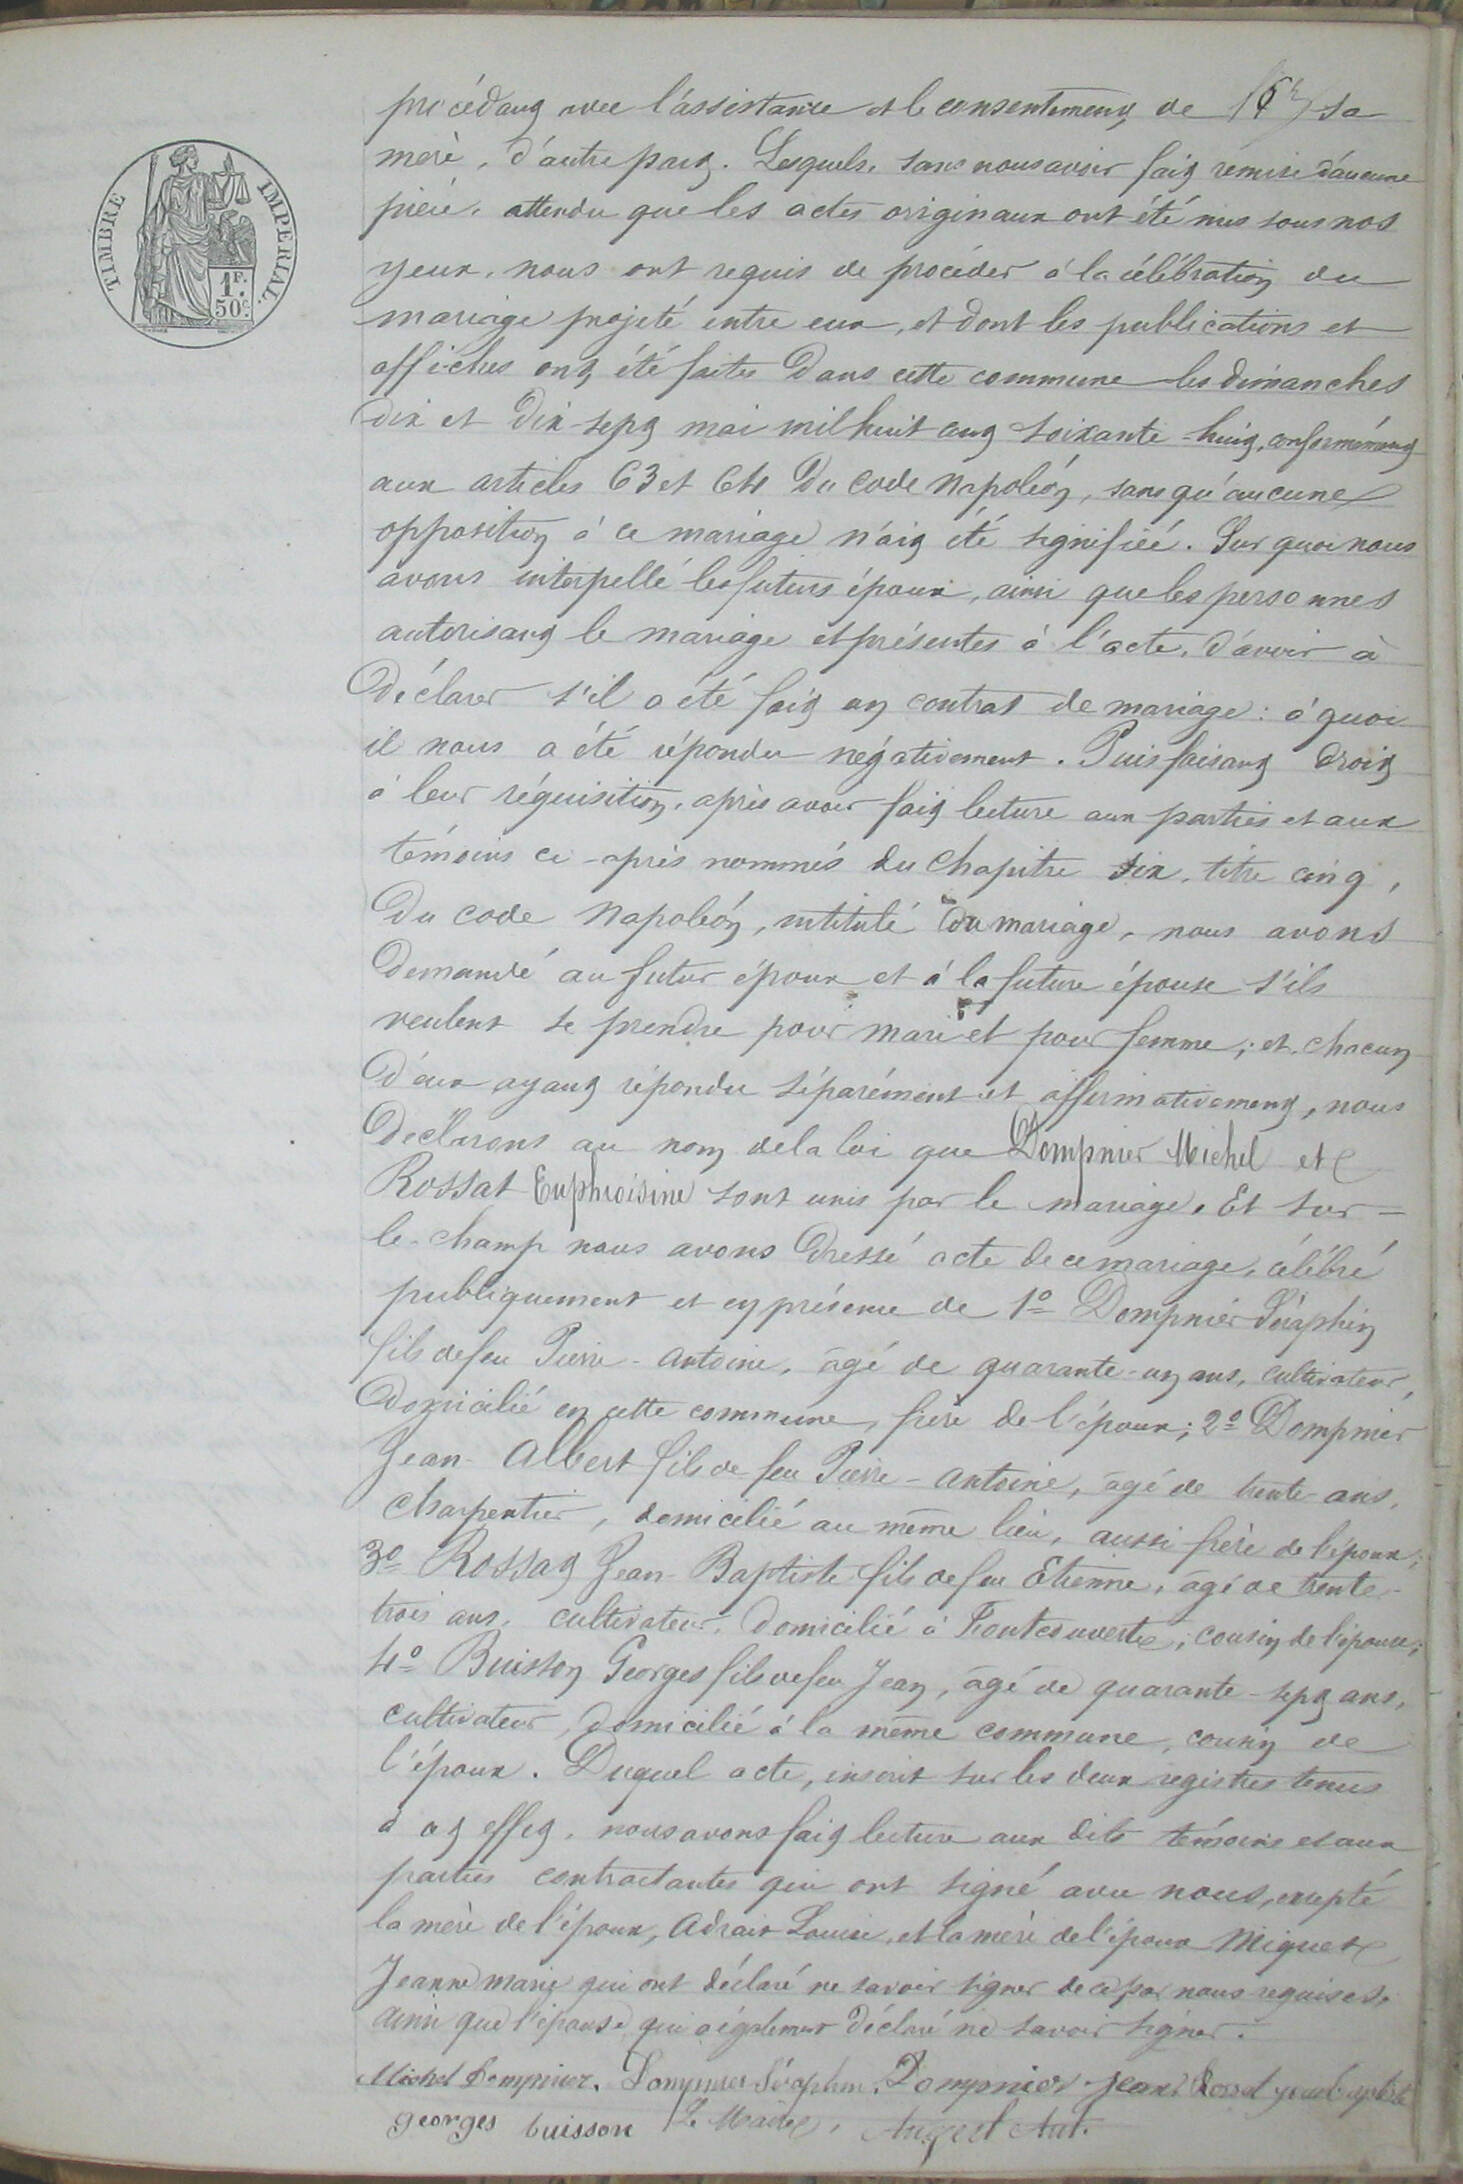 TIMBRE IMPERIAL.
1F.
50c.
procédant avec l'assistance et le consentement de sa
mère, d'autre part. Lesquels, sans nous avoir fait remise d'aucune
pièce, attendu que les actes originaux ont été mis sous nos
yeux, nous ont requis de procéder à la célébration du
mariage projeté entre eux, et dont les publications et
affiches ont été faites dans cette commune les dimanches
dix et dix-sept mai mil huit cent soixante-huit, conformément
aux articles 63 et 64 du code Napoléon, sans qu'aucune
opposition à ce mariage n'ait été signifiée. Sur quoi nous
avons interpellé les futurs époux, ainsi que les personnes
autorisant le mariage et présentes à l'acte, d'avoir à
déclarer s'il a été fait un contrat de mariage : à quoi
il nous a été répondu négativement. Puis faisant droit
à leur réquisition, après avoir fait lecture aux parties et aux
témoins ci-après nommés du chapitre six, titre cinq,
du code Napoléon, intitulé du mariage, nous avons
demandé au futur époux et à la future épouse s'ils
veulent se prendre pour mari et pour femme ; et chacun
d'eux ayant répondu séparément et affirmativement, nous
déclarons au nom de la loi que Dompnier Michel et
Rossat Euphroisine sont unis par le mariage. Et sur-
le-champ nous avons dressé acte de ce mariage, célébré
publiquement et en présence de 1o Dompnier Séraphin
fils de feu Pierre-Antoine, âgé de quarante-un ans, cultivateur,
domicilié en cette commune, frère de l'époux ; 2o Dompnier
Jean-Albert fils de feu Pierre-Antoine, âgé de trente ans,
charpentier, domicilié au même lieu, aussi frère de l'époux ;
3o Rossat Jean-Baptiste fils de feu Etienne, âgé de trente-
trois ans, cultivateur, domicilié à Fontcouverte, cousin de l'épouse ;
4o Buisson Georges fils de feu Jean, âgé de quarante-sept ans,
cultivateur, domicilié à la même commune, cousin de
l'époux. Duquel acte, inscrit sur les deux registres tenus
à cet effet, nous avons fait lecture aux dits témoins et aux
parties contractantes qui ont signé avec nous, excepté
la mère de l'époux, Adrait Louise, et la mère de l'épouse Miguet
Jeanne marie qui ont déclaré ne savoir signer de ce par nous requises,
ainsi que l'épouse qui a également déclaré ne savoir signer.
Michel Dompnier. Dompnier Séraphin. Dompnier Jean Rossat jean baptiste
georges buisson Le Maire, Ant.